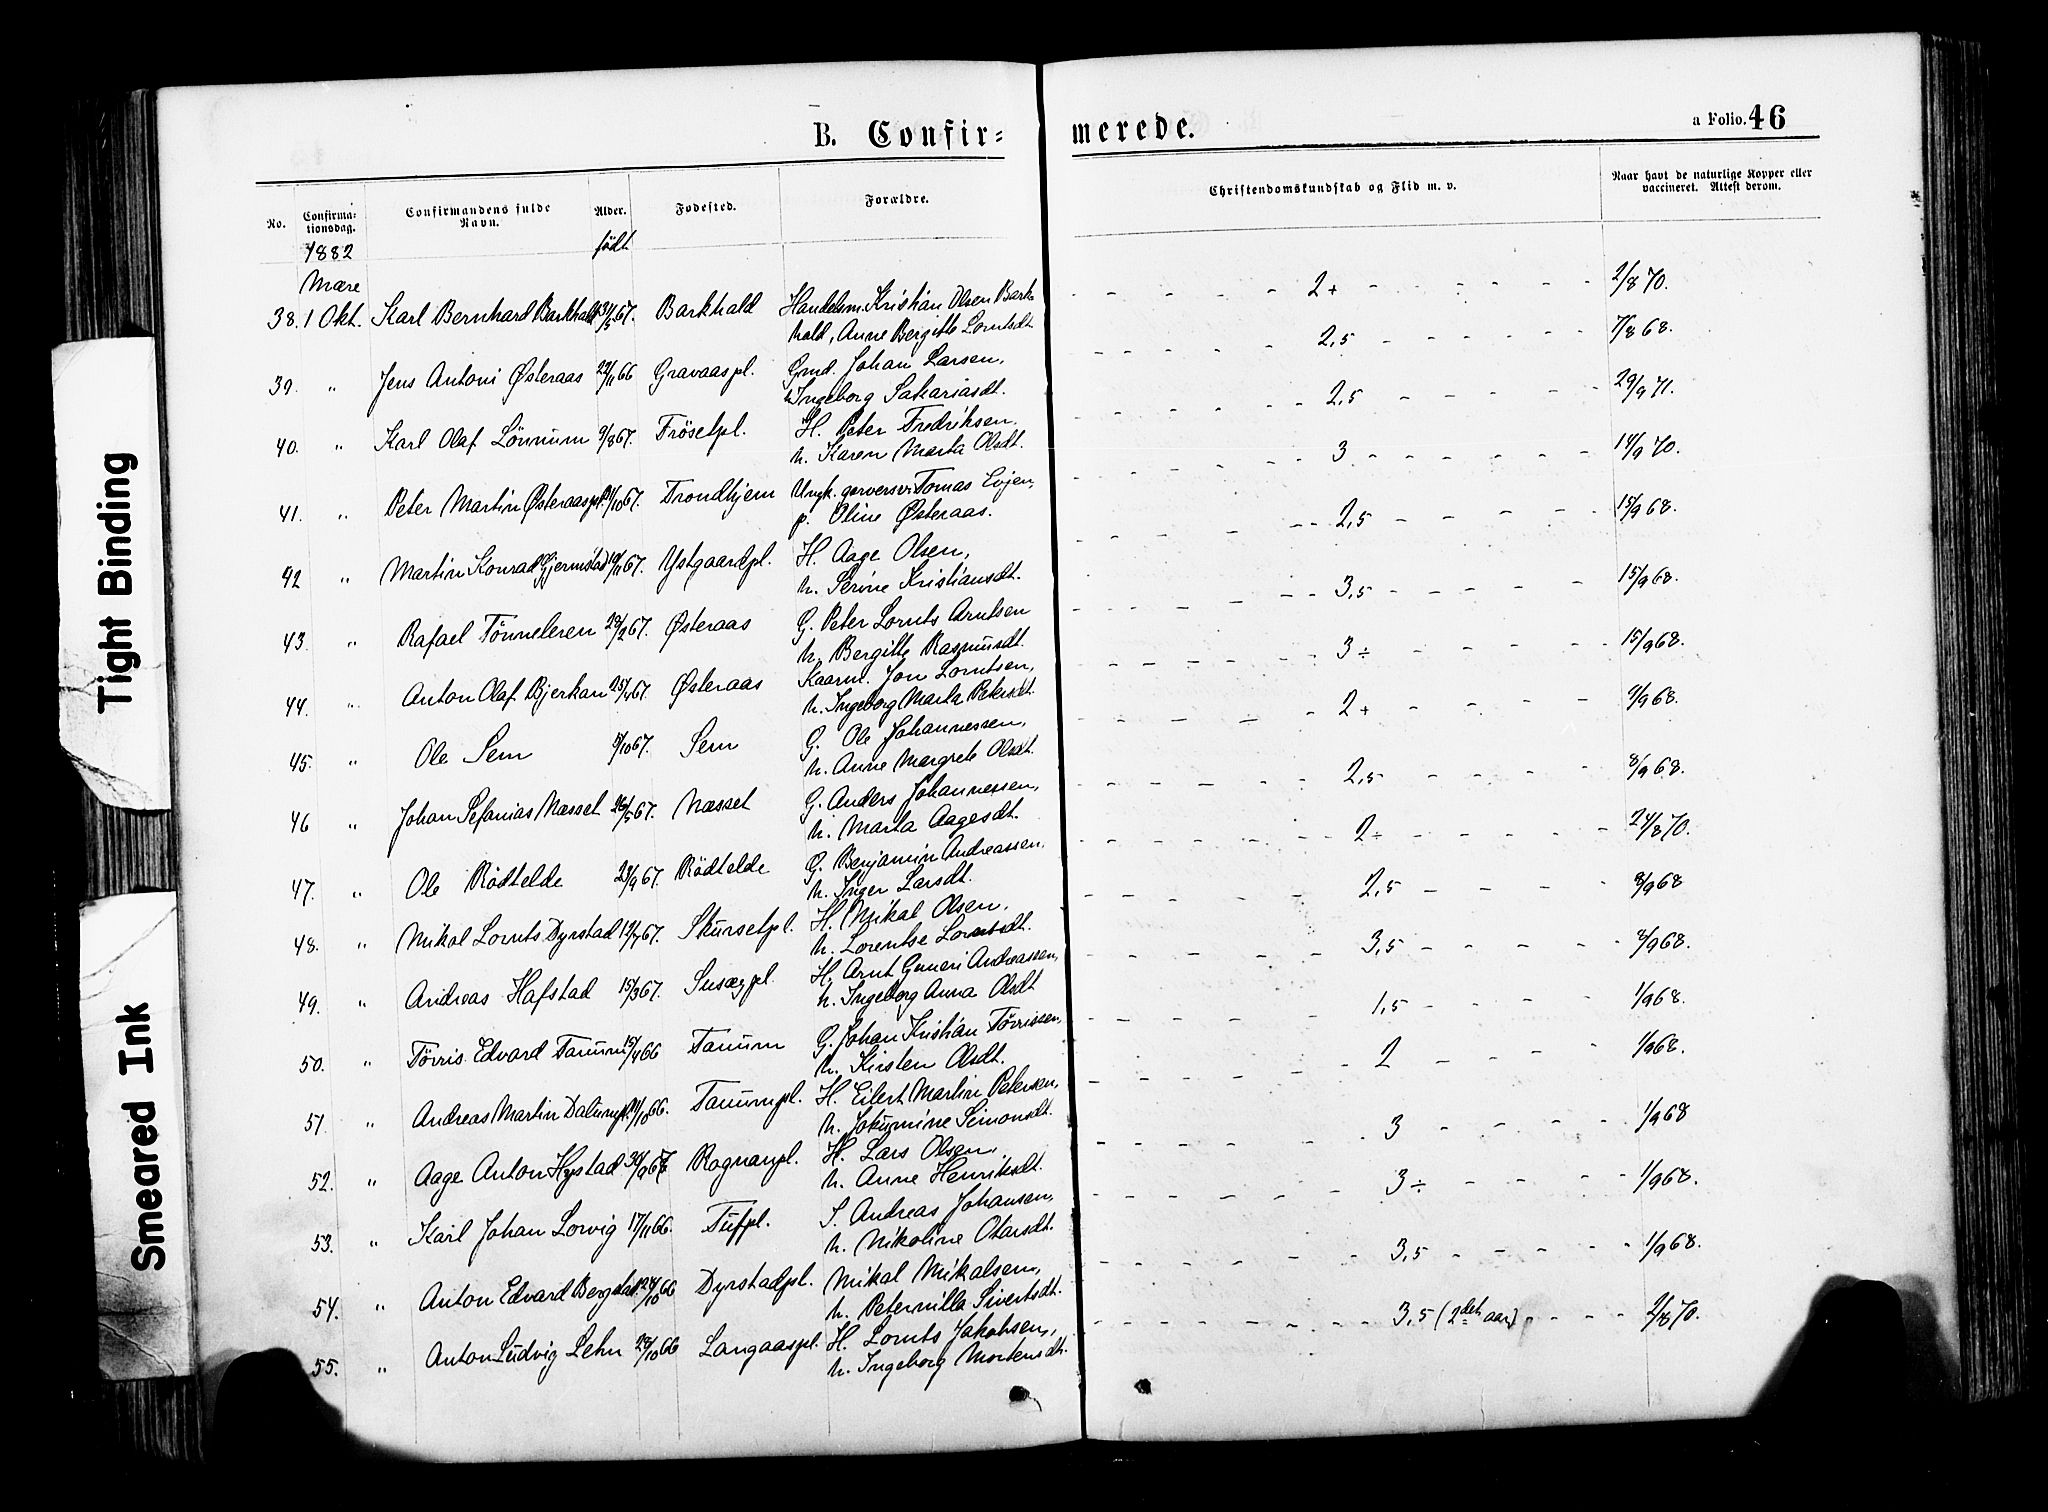 Tight Binding
Smeared Ink
B. Confir= merede.
a Folio. 46
No. Confirma- tionsdag. Confirmandens fulde Navn. Alder. Fødested. Forældre. Christendomskundskab og Flid m. v. Naar havt de naturlige Kopper eller vaccineret. Attest derom.
1882 födt
Mære
38. 1 Okt. Karl Bernhard Barkhald 31/5 67. Barkhald Handelsm. Kristian Olsen Bark- 2+ 2/8 70.
hald, Anne Bergitte Lorntsdt.
39. " Jens Antoni Østeraas 22/11 66 Gravaaspl. Gmd. Johan Larsen, 2,5 7/8 68.
Ingeborg Sakariasdt.
40. " Karl Olaf Lönnum 9/8 67. Fröselpl. H. Peter Fredriksen, 2,5 29/9 71.
h. Karen Marta Olsdt.
41. " Peter Martin Østeraaspl. /10 67. Trondhjem Ungk. garversv. Tomas Evjen, 3 14/9 70.
p. Oline Østeraas.
42 " Martin Konrad Gjermstad 10/11 67. Ystgaardpl. H. Aage Olsen, 2,5 15/9 68.
h. Serine Kristiansdt.
43. " Rafael Tönneleren 28/2 67. Østeraas G. Peter Lornts Arntsen 3,5 15/9 68.
h. Bergitte Rasmusdt.
44. " Anton Olaf Bjerkan 25/4 67. Østeraas Kaarm. Jon Lorntsen, 3÷ 15/9 68.
h. Ingeborg Marta Petersdt.
45. " Ole Sem /10 67. Sem G. Ole Johannessen, 2+ 1/9 68.
h. Anne Margrete Olsdt.
46 " Johan Sefanias Næsset 26/5 67. Næsset G. Anders Johannessen, 2,5 8/9 68.
h. Marta Aagesdt.
47. " Ole Rödtelde 28/9 67. Rödtelde G. Benjamin Andreassen, 2÷ 24/8 70.
h. Inger Larsdt.
48. " Mikal Lornts Dyrstad 12/7 67. Skursetpl. H. Mikal Olsen, 2,5 8/9 68
h. Lorentse Lorntsdt.
49. " Andreas Hafstad 15/3 67. Susægpl. H. Arnt Guneri Andreassen, 3,5 8/9 68.
h. Ingeborg Anna Olsdt
50. " Törris Edvard Tanum 15/4 66 Tanum G. Johan Kristian Törrissen, 1,5 1/9 68.
h. Kirsten Olsdt.
51. " Andreas Martin Dalumpl. /10 66. Tanumpl. H. Eilert Martin Petersen, 2 1/9 68.
h. Jokumine Simonsdt.
52. " Aage Anton Hystad 30/9 67 Rognanpl. H. Lars Olsen, 3 1/9 68
h. Anne Henriksdt.
53. " Karl Johan Lorvig 17/11 66. Tufpl. S. Andreas Johansen, 3÷ 1/9 68.
h. Nikoline Olarsdt.
54. " Anton Edvard Bergstad 24/10 66 Dyrstadpl. Mikal Mikalsen, 3,5 1/9 68.
h. Peternilla Sivertsdt.
55. " Anton Ludvig Lehn 28/10 66 Langaaspl. H. Lornts Jakobsen, 3,5 (2det aar) 2/8 70.
h. Ingeborg Mortensdt.